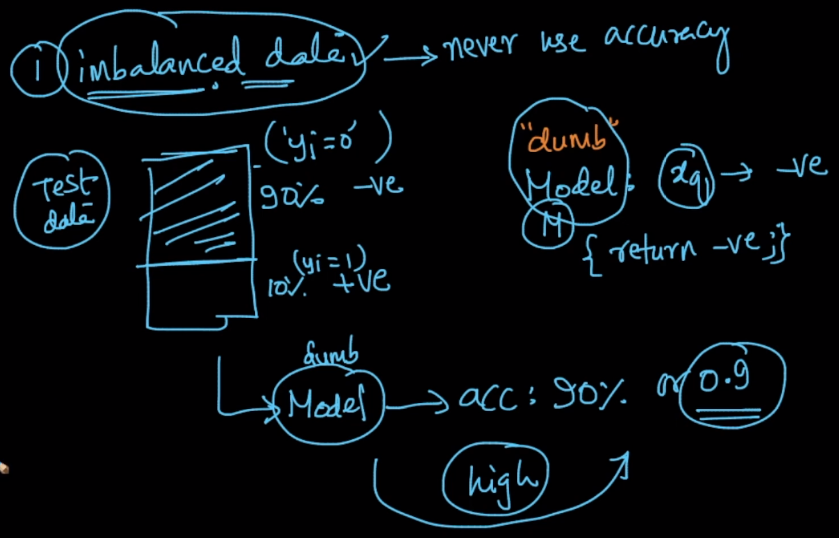 1 imbalanced data → never use accuracy
Test data
(yi=0)
90% -ve
(yi=1)
10% +ve
"dumb"
Model: xq → -ve
M
{ return -ve; }
dumb
Model → acc: 90% or 0.9
high